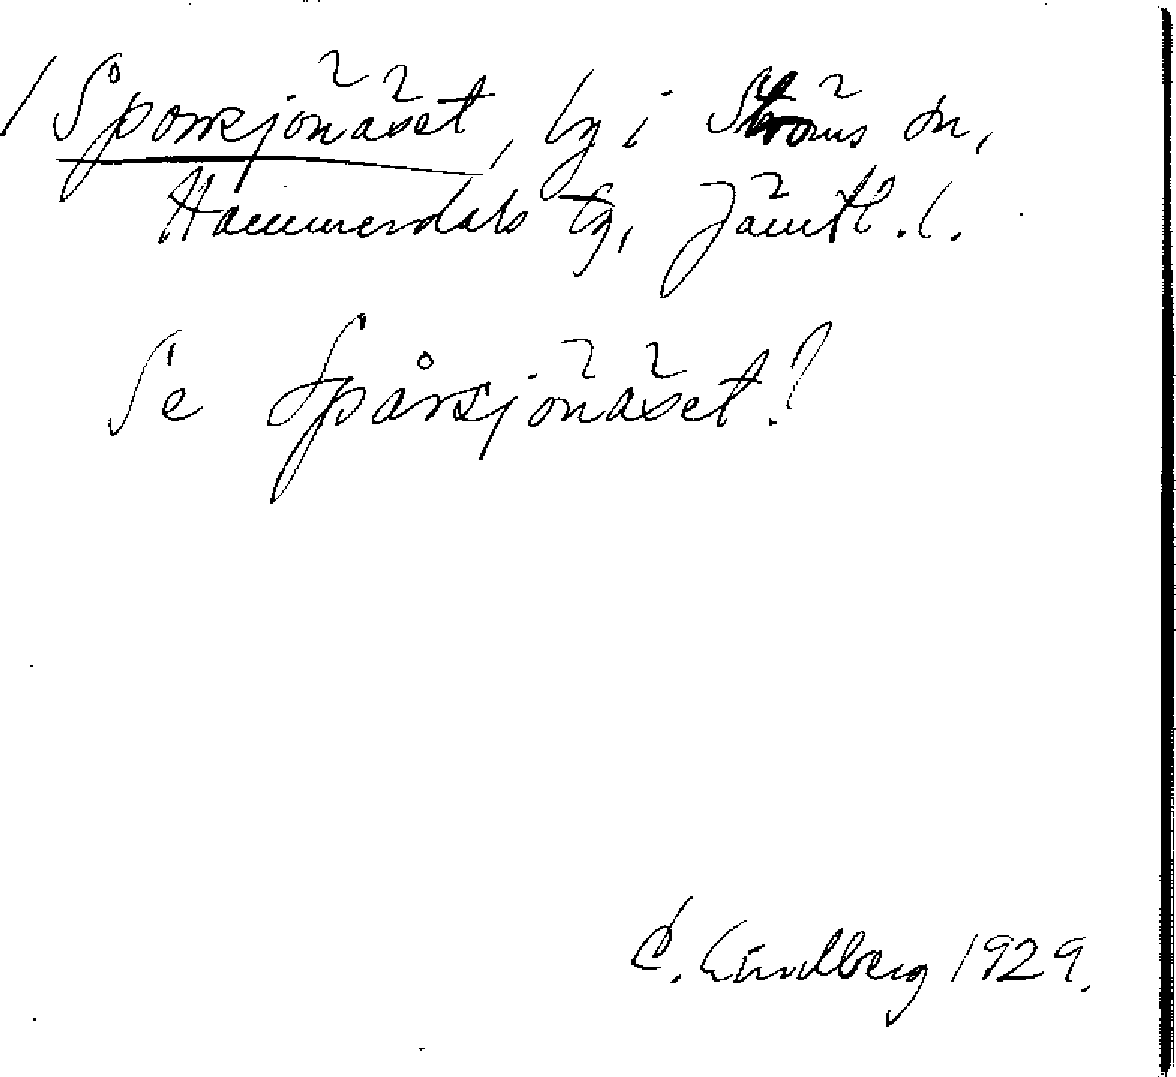 / Sporrsjönäset, by i Ströms sn,
Hammerdals tg, Jämtl. l.
Se Spårrsjönäset!
C. Lindberg 1929.